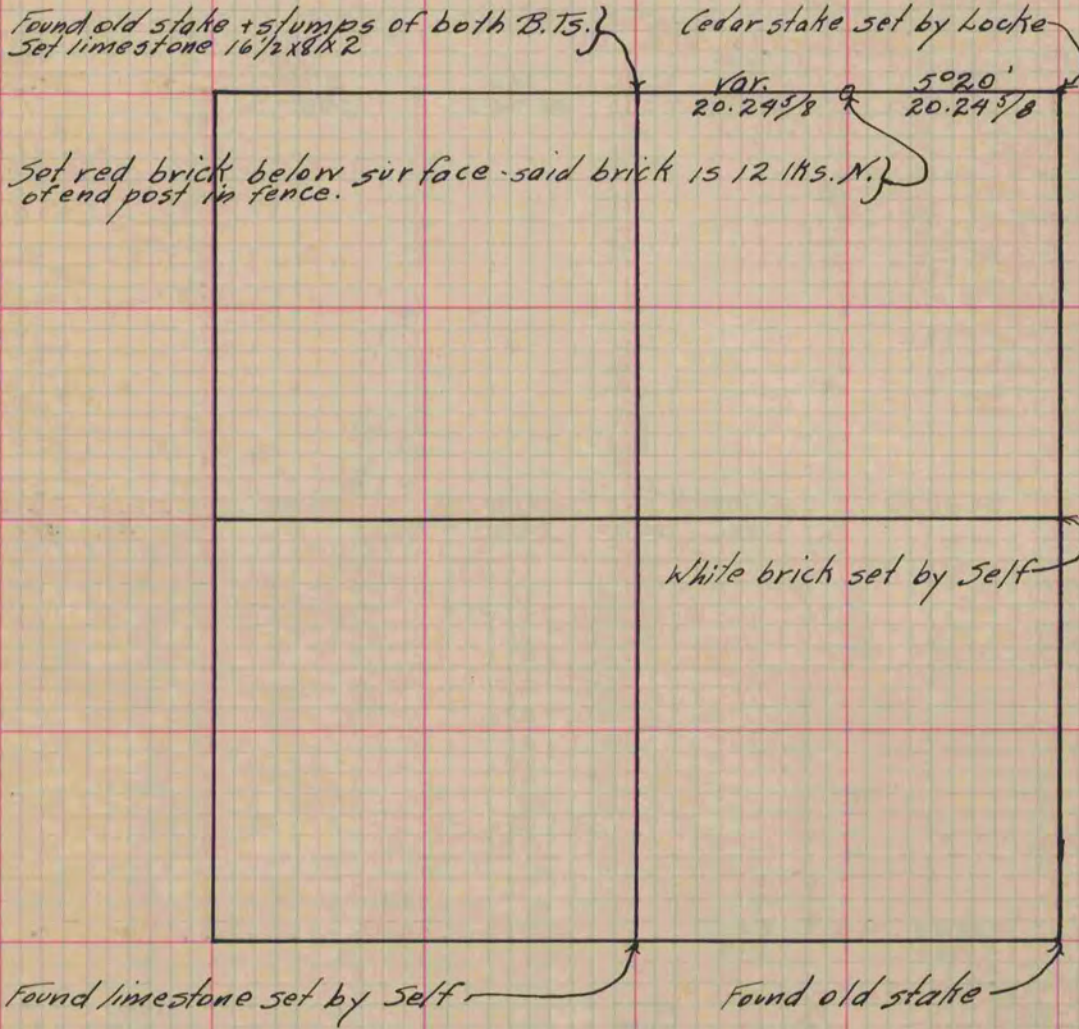 Found old stake + stumps of both B.Ts.}
Set limestone 16 1/2 x 8 1/2 x 2
Cedar stake set by Locke
Var. 5°20'
20.24 5/8 20.24 5/8
Set red brick below surface - said brick is 12 lks. N.}
of end post in fence.
White brick set by Self
Found limestone set by Self
Found old stake